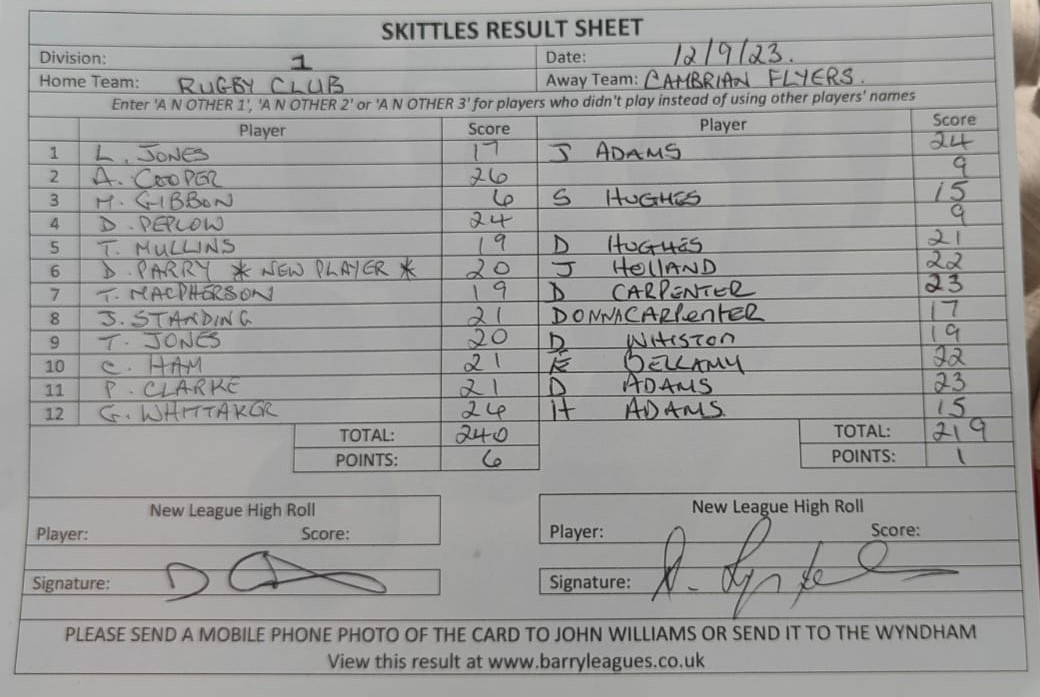 SKITTLES RESULT SHEET
Division: 1 Date: 12/9/23.
Home Team: RUGBY CLUB Away Team: CAMBRIAN FLYERS.
Enter 'A N OTHER 1', 'A N OTHER 2' or 'A N OTHER 3' for players who didn't play instead of using other players' names
Player Score Player Score
1 L. JONES 17 J ADAMS 24
2 A. COOPER 26 9
3 M. GIBBON 6 S HUGHES 15
4 D. PEPLOW 24 9
5 T. MULLINS 19 D HUGHES 21
6 D. PARRY * NEW PLAYER * 20 J HOLLAND 22
7 T. MACPHERSON 19 D CARPENTER 23
8 J. STANDING 21 DONNA CARPENTER 17
9 T. JONES 20 D WHISTON 19
10 C. HAM 21 E BELLAMY 22
11 P. CLARKE 21 D ADAMS 23
12 G. WHITTAKER 26 H ADAMS 15
TOTAL: 240 TOTAL: 219
POINTS: 6 POINTS: 1
New League High Roll New League High Roll
Player: Score: Player: Score:
Signature: D Signature:
PLEASE SEND A MOBILE PHONE PHOTO OF THE CARD TO JOHN WILLIAMS OR SEND IT TO THE WYNDHAM
View this result at www.barryleagues.co.uk